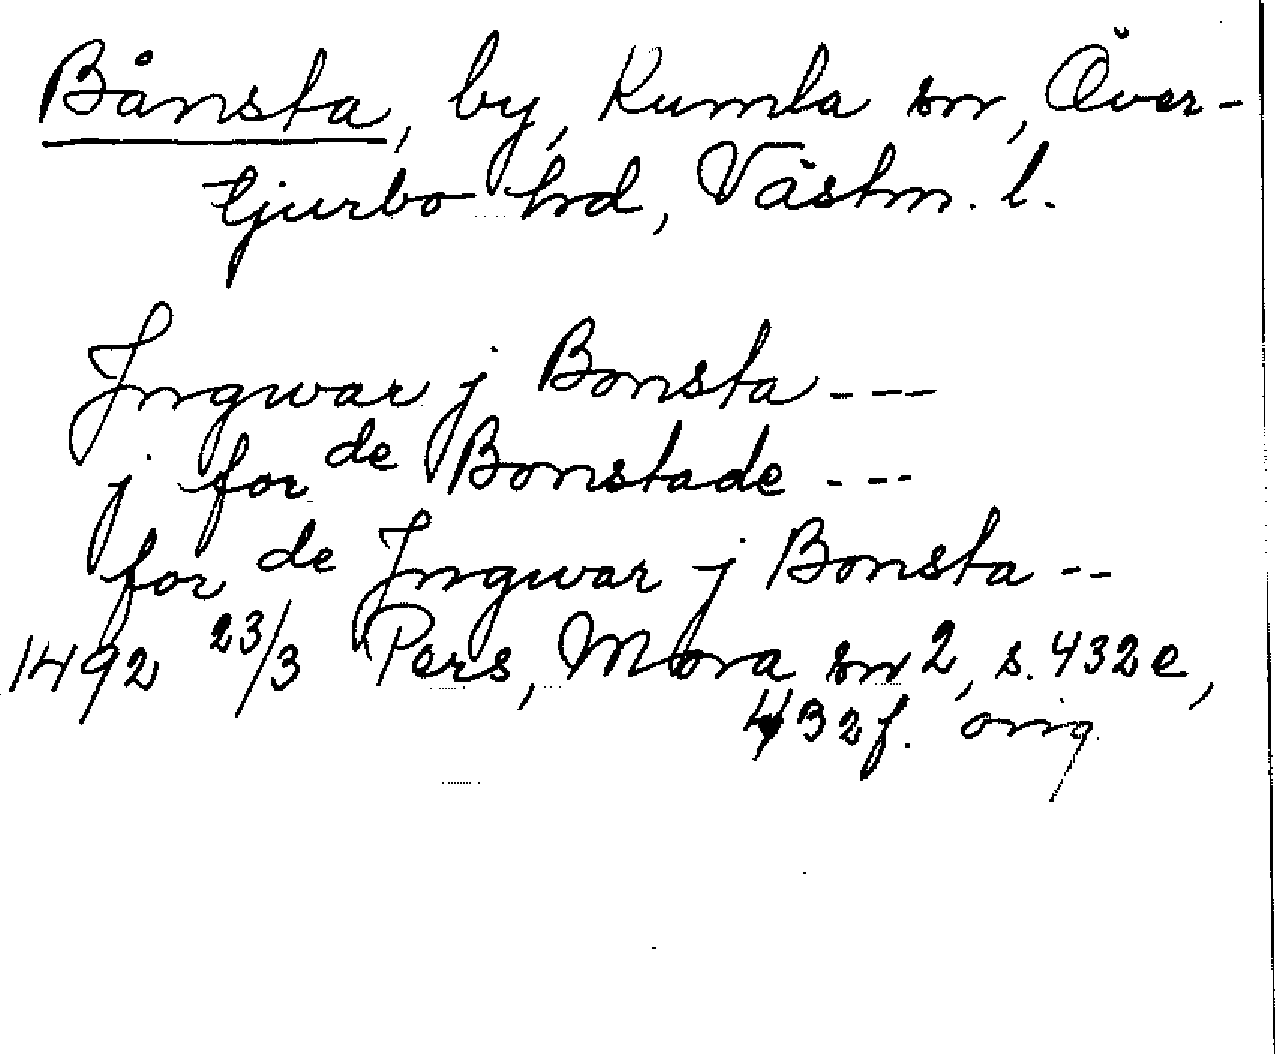 Bånsta, by, Kumla sn, Över-
tjurbo hd, Västm. l.
Jngwar j Bonsta ---
j for de Bonstade ---
for de Jngwar j Bonsta --
1492 23/3 Pers, Mora sn 2, s. 432 e,
432 f. orig.